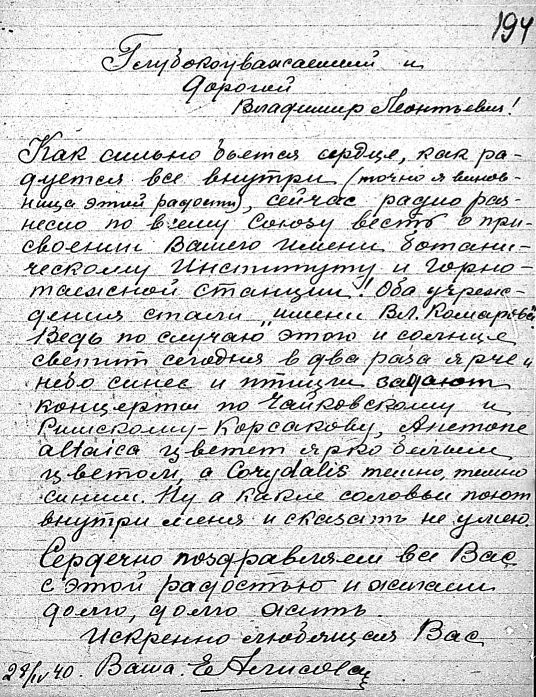 194
Глубокоуважаемый и
Дорогой
Владимир Леонтьевич!
Как сильно бьется сердце, как ра-
дуется все внутри (точно я винов-
ница этой радости), сейчас радио раз-
несло по всему Союзу весть о при-
своении Вашего имени ботани-
ческому Институту и Горно-
таежной станции! Оба учреж-
дения стали "имени Вл. Комарова".
Ведь по случаю этого и солнце
светит сегодня в два раза ярче и
небо синее и птицы задают
концерты по Чайковскому и
Римскому-Корсакову, Anemone
altaica цветет ярко белым
цветом, а Corydalis темно, темно
синим. Ну а какие соловьи поют
внутри меня и сказать не умею.
Сердечно поздравляем все Вас
с этой радостью и желаем
долго, долго жить.
Искренно любящая Вас
IV 40. Ваша Е Алисова